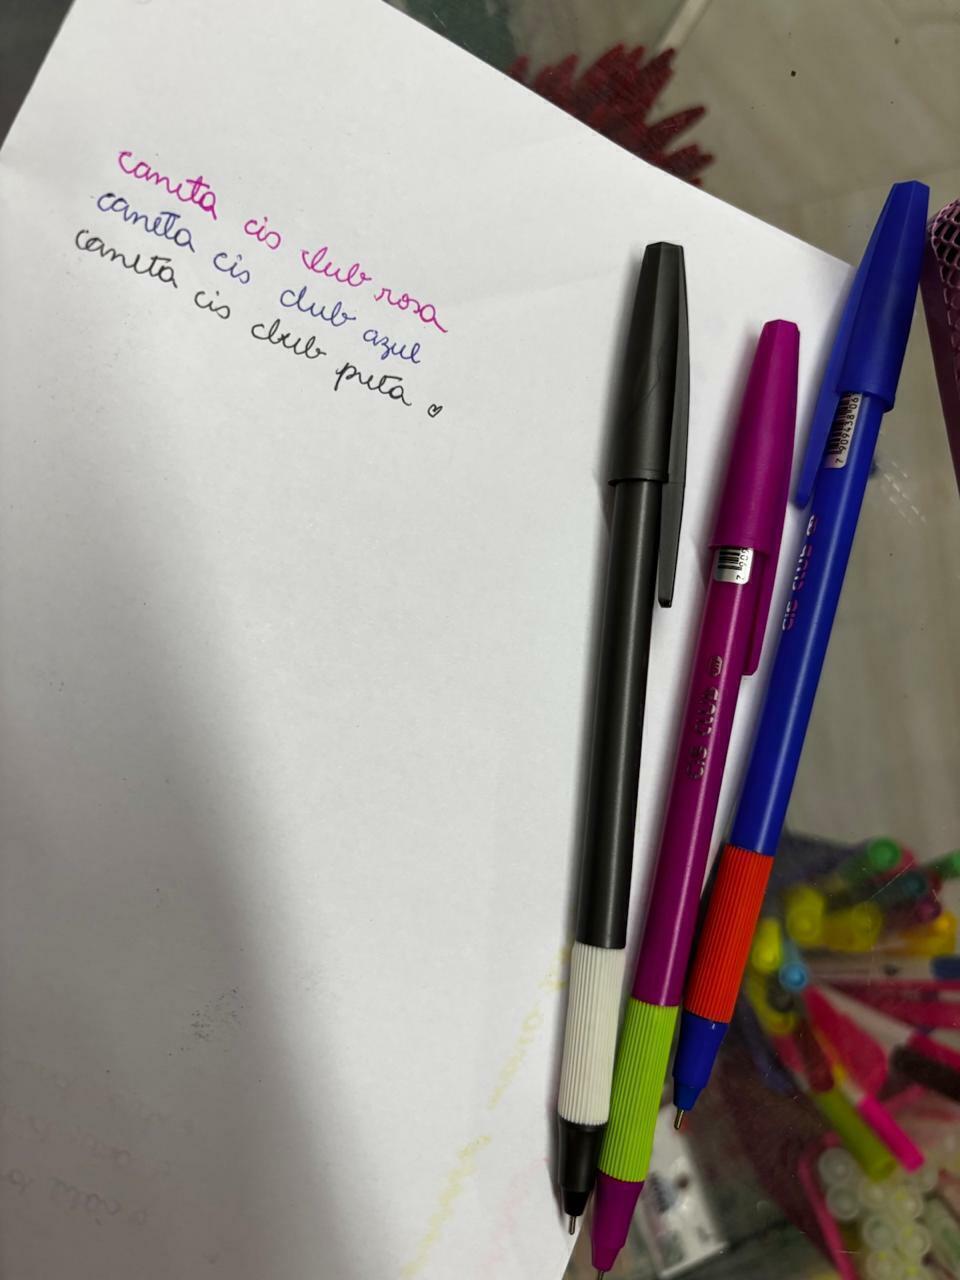 caneta cis club rosa
caneta cis club azul
caneta cis club preta
CIS CLUB
7 909
CIS CLUB
7 909438 06